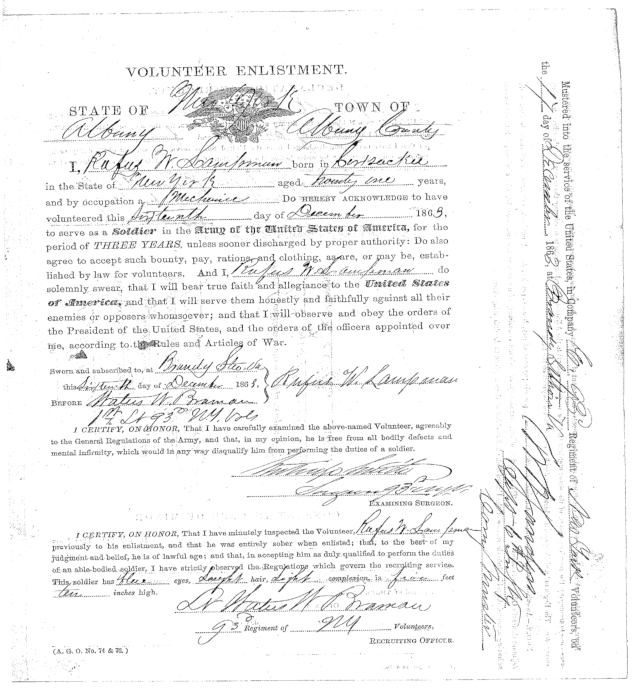 VOLUNTEER ENLISTMENT.
STATE OF New York TOWN OF
Albany Albany County
I, Rufus W Lampman born in Coxsackie
in the State of New York aged twenty one years,
and by occupation a Mechanic Do HEREBY ACKNOWLEDGE to have
volunteered this Sixteenth day of December 1863,
to serve as a Soldier in the Army of the United States of America, for the
period of THREE YEARS, unless sooner discharged by proper authority: Do also
agree to accept such bounty, pay, rations, and clothing, as are, or may be, estab-
lished by law for volunteers. And I, Rufus W Lampman do
solemnly swear, that I will bear true faith and allegiance to the United States
of America, and that I will serve them honestly and faithfully against all their
enemies or opposers whomsoever; and that I will observe and obey the orders of
the President of the United States, and the orders of the officers appointed over
me, according to the Rules and Articles of War.
Sworn and subscribed to, at Brandy Sta. Va
this Sixteenth day of December 1863, Rufus W. Lampman
BEFORE Waters W. Braman
1st Lt 93d NY. Vols
I CERTIFY, ON HONOR, That I have carefully examined the above-named Volunteer, agreeably
to the General Regulations of the Army, and that, in my opinion, he is free from all bodily defects and
mental infirmity, which would in any way disqualify him from performing the duties of a soldier.
Surgeon 93
EXAMINING SURGEON.
I CERTIFY, ON HONOR, That I have minutely inspected the Volunteer, Rufus W. Lampman
previously to his enlistment, and that he was entirely sober when enlisted; that, to the best of my
judgment and belief, he is of lawful age; and that, in accepting him as duly qualified to perform the duties
of an able-bodied soldier, I have strictly observed the Regulations which govern the recruiting service.
This soldier has blue eyes, hair, light complexion, is feet
ten inches high.
Lt Waters W. Braman
93d Regiment of NY
RECRUITING OFFICER.
(A. G. O. No. 74 & 76.)
Mustered into the service of the United States, in Company 93 Regiment of New York Volunteers,
the 17 day of December 1863, at Brandy Station Va